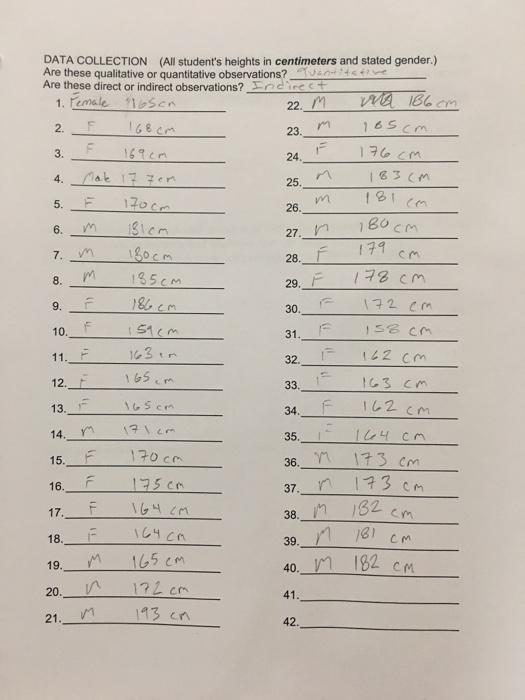 DATA COLLECTION (All student's heights in centimeters and stated gender.)
Are these qualitative or quantitative observations? Quantitative
Are these direct or indirect observations? Indirect
1. Female 165cm
2. F 168cm
3. F 169cm
4. Male 177cm
5. F 170cm
6. M 181cm
7. M 180cm
8. M 185cm
9. F 186cm
10. F 159cm
11. F 163cm
12. F 165cm
13. F 165cm
14. M 171cm
15. F 170cm
16. F 175cm
17. F 164cm
18. F 164cm
19. M 165cm
20. M 172cm
21. M 193cm
22. M 186cm
23. M 185cm
24. F 176cm
25. M 183cm
26. M 181cm
27. M 180cm
28. F 179cm
29. F 178cm
30. F 172cm
31. F 158cm
32. F 162cm
33. F 163cm
34. F 162cm
35. F 164cm
36. M 173cm
37. M 173cm
38. M 182cm
39. M 181cm
40. M 182cm
41.
42.